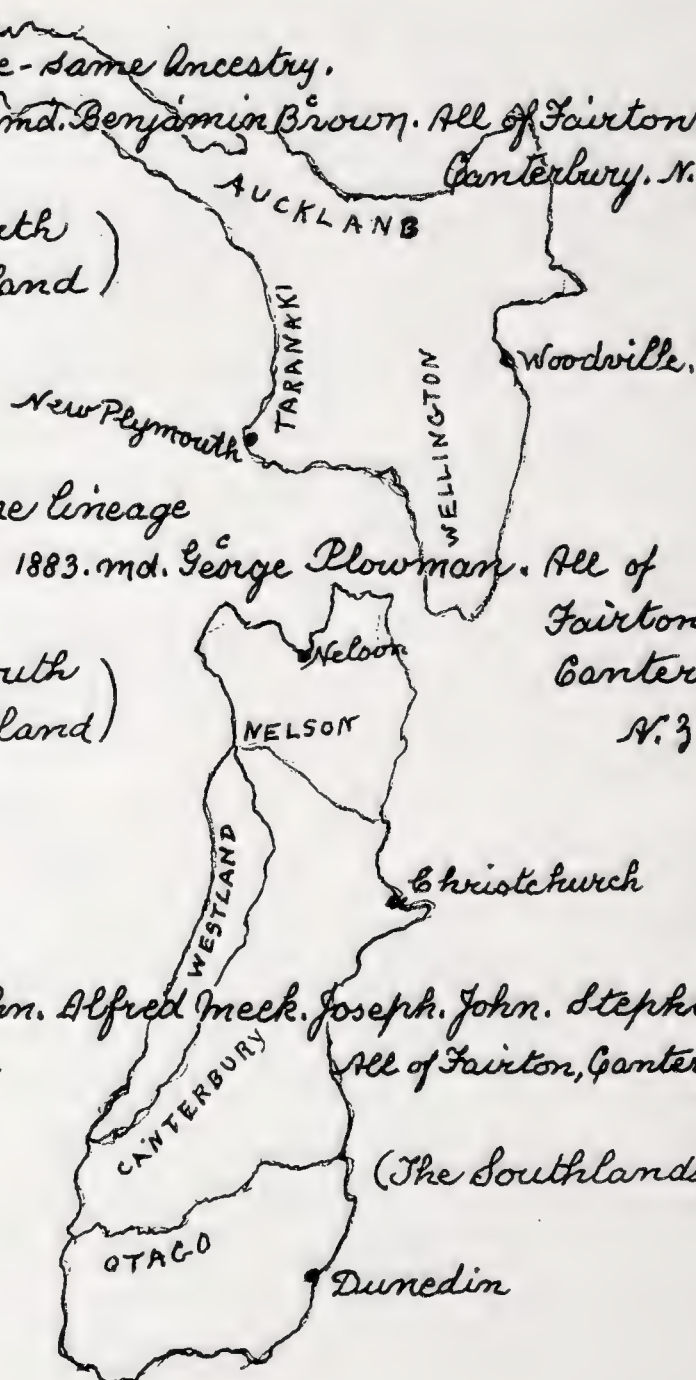 e-same Ancestry.
md. Benjamin Brown. All of Fairton
Canterbury. N.
AUCKLAND
uth
land)
TARANAKI
WELLINGTON
Woodville.
New Plymouth
ne lineage
1883. md. George Plowman. All of
Fairton
Canter
N. Z
Nelson
uth
land)
NELSON
Christchurch
WESTLAND
hn. Alfred Meek. Joseph. John. Steph
All of Fairton, Canter
CANTERBURY
(The Southlands
OTAGO
Dunedin